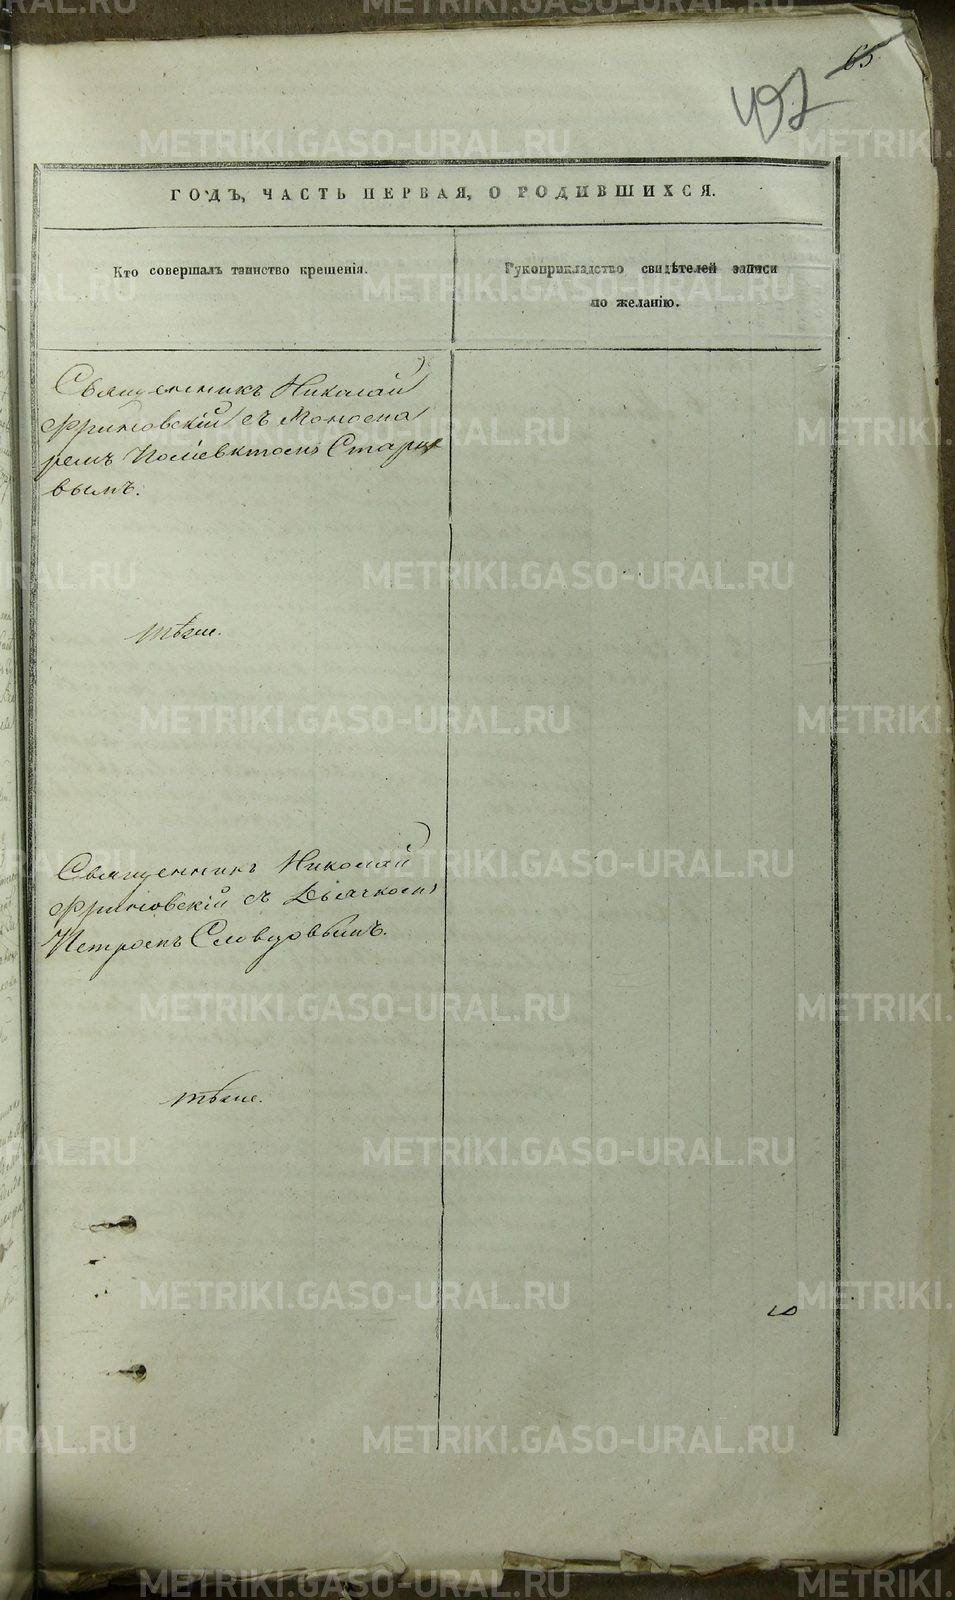 65
497
ГОДЪ, ЧАСТЬ ПЕРВАЯ, О РОДИВШИХСЯ.
Кто совершалъ таинство крещенія.
Рукоприкладство свидѣтелей записи
по желанію.
Священникъ Николай
Фриновскій съ Поном
аремъ Поліевктомъ Старце
вымъ.
тѣже.
Священникъ Николай
Фриновскій съ Дьячкомъ
Петромъ Словцовымъ.
тѣже.
METRIKI.GASO-URAL.RU